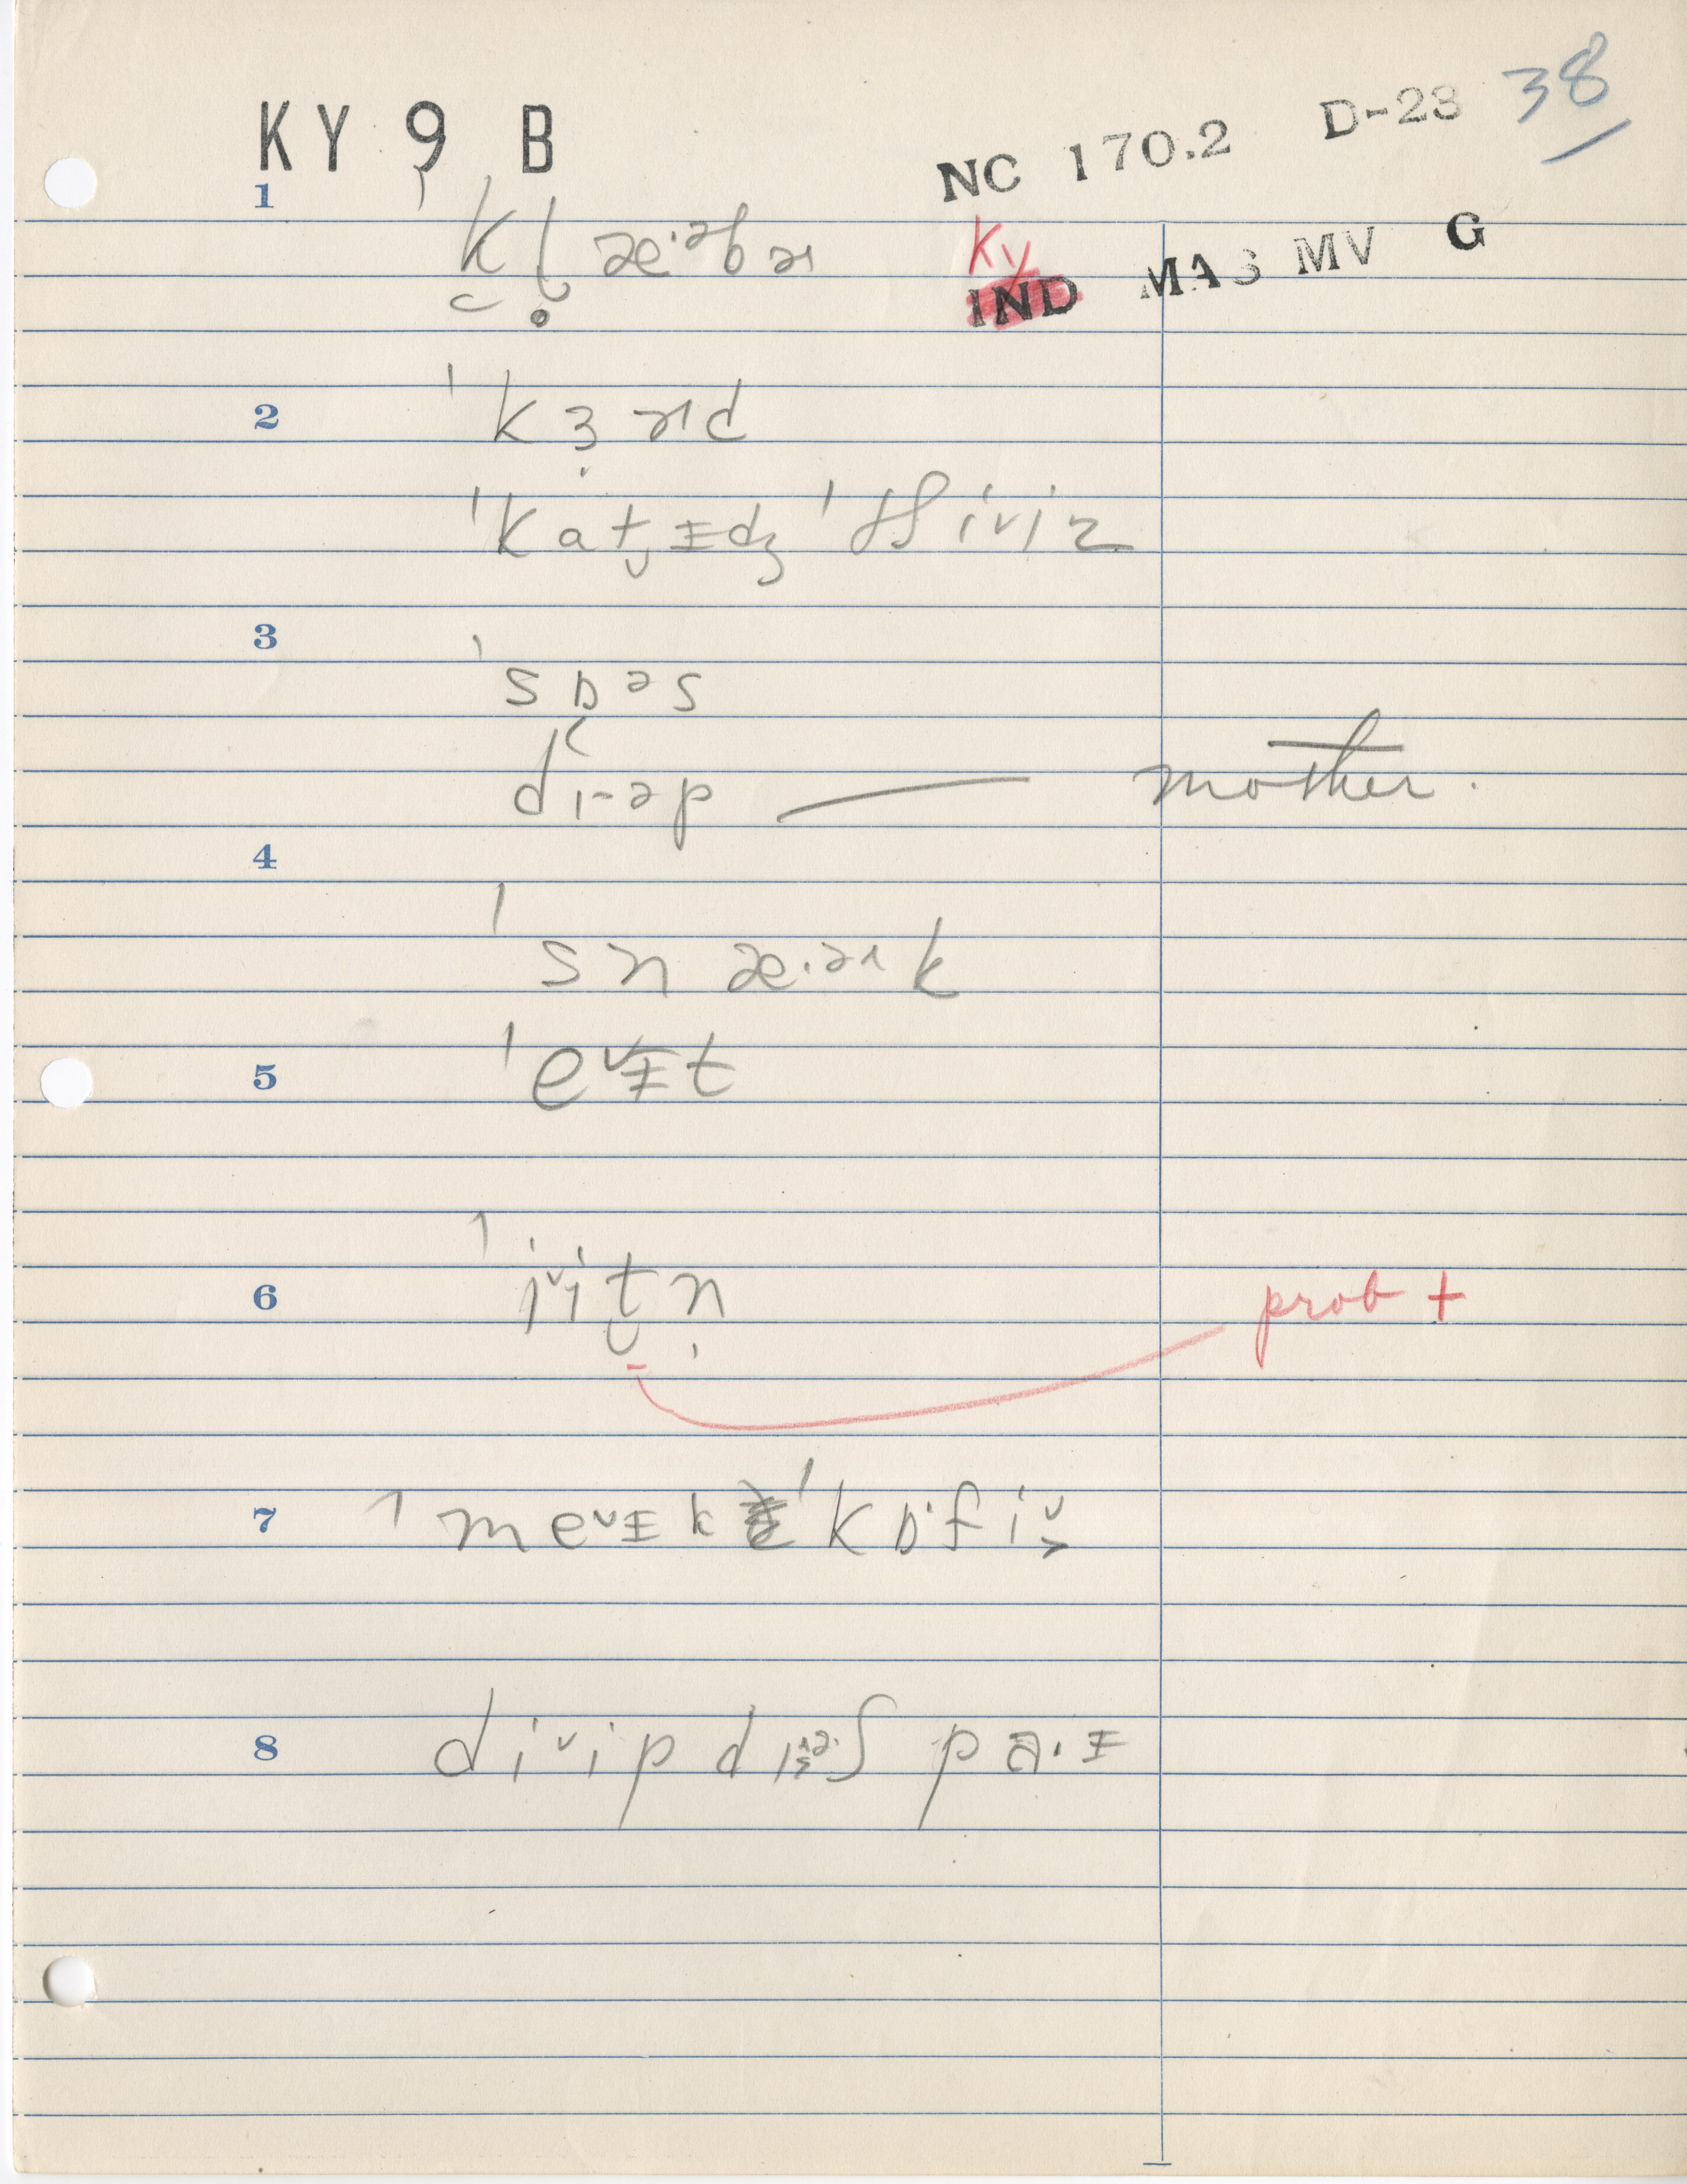 KY 9 B
NC 170.2 D-23 38
Ky
IND MAS MV G
1 ˈkl̥æ·ᵊbɚ
2 ˈkɜ˞d
ˈkatɪdʒ ˈtʃiᵛiz
3 ˈsɒᵊs
dɪ-əp — mother.
4
ˈsnæ·ɚk
5 ˈeᵛɪt
6 ˈiᵛit̬n̩ prob t
7 ˈmeᵛɪk ˈkɒ·fiᵛ
8 diᵛip dɪʃ pa·ɪ